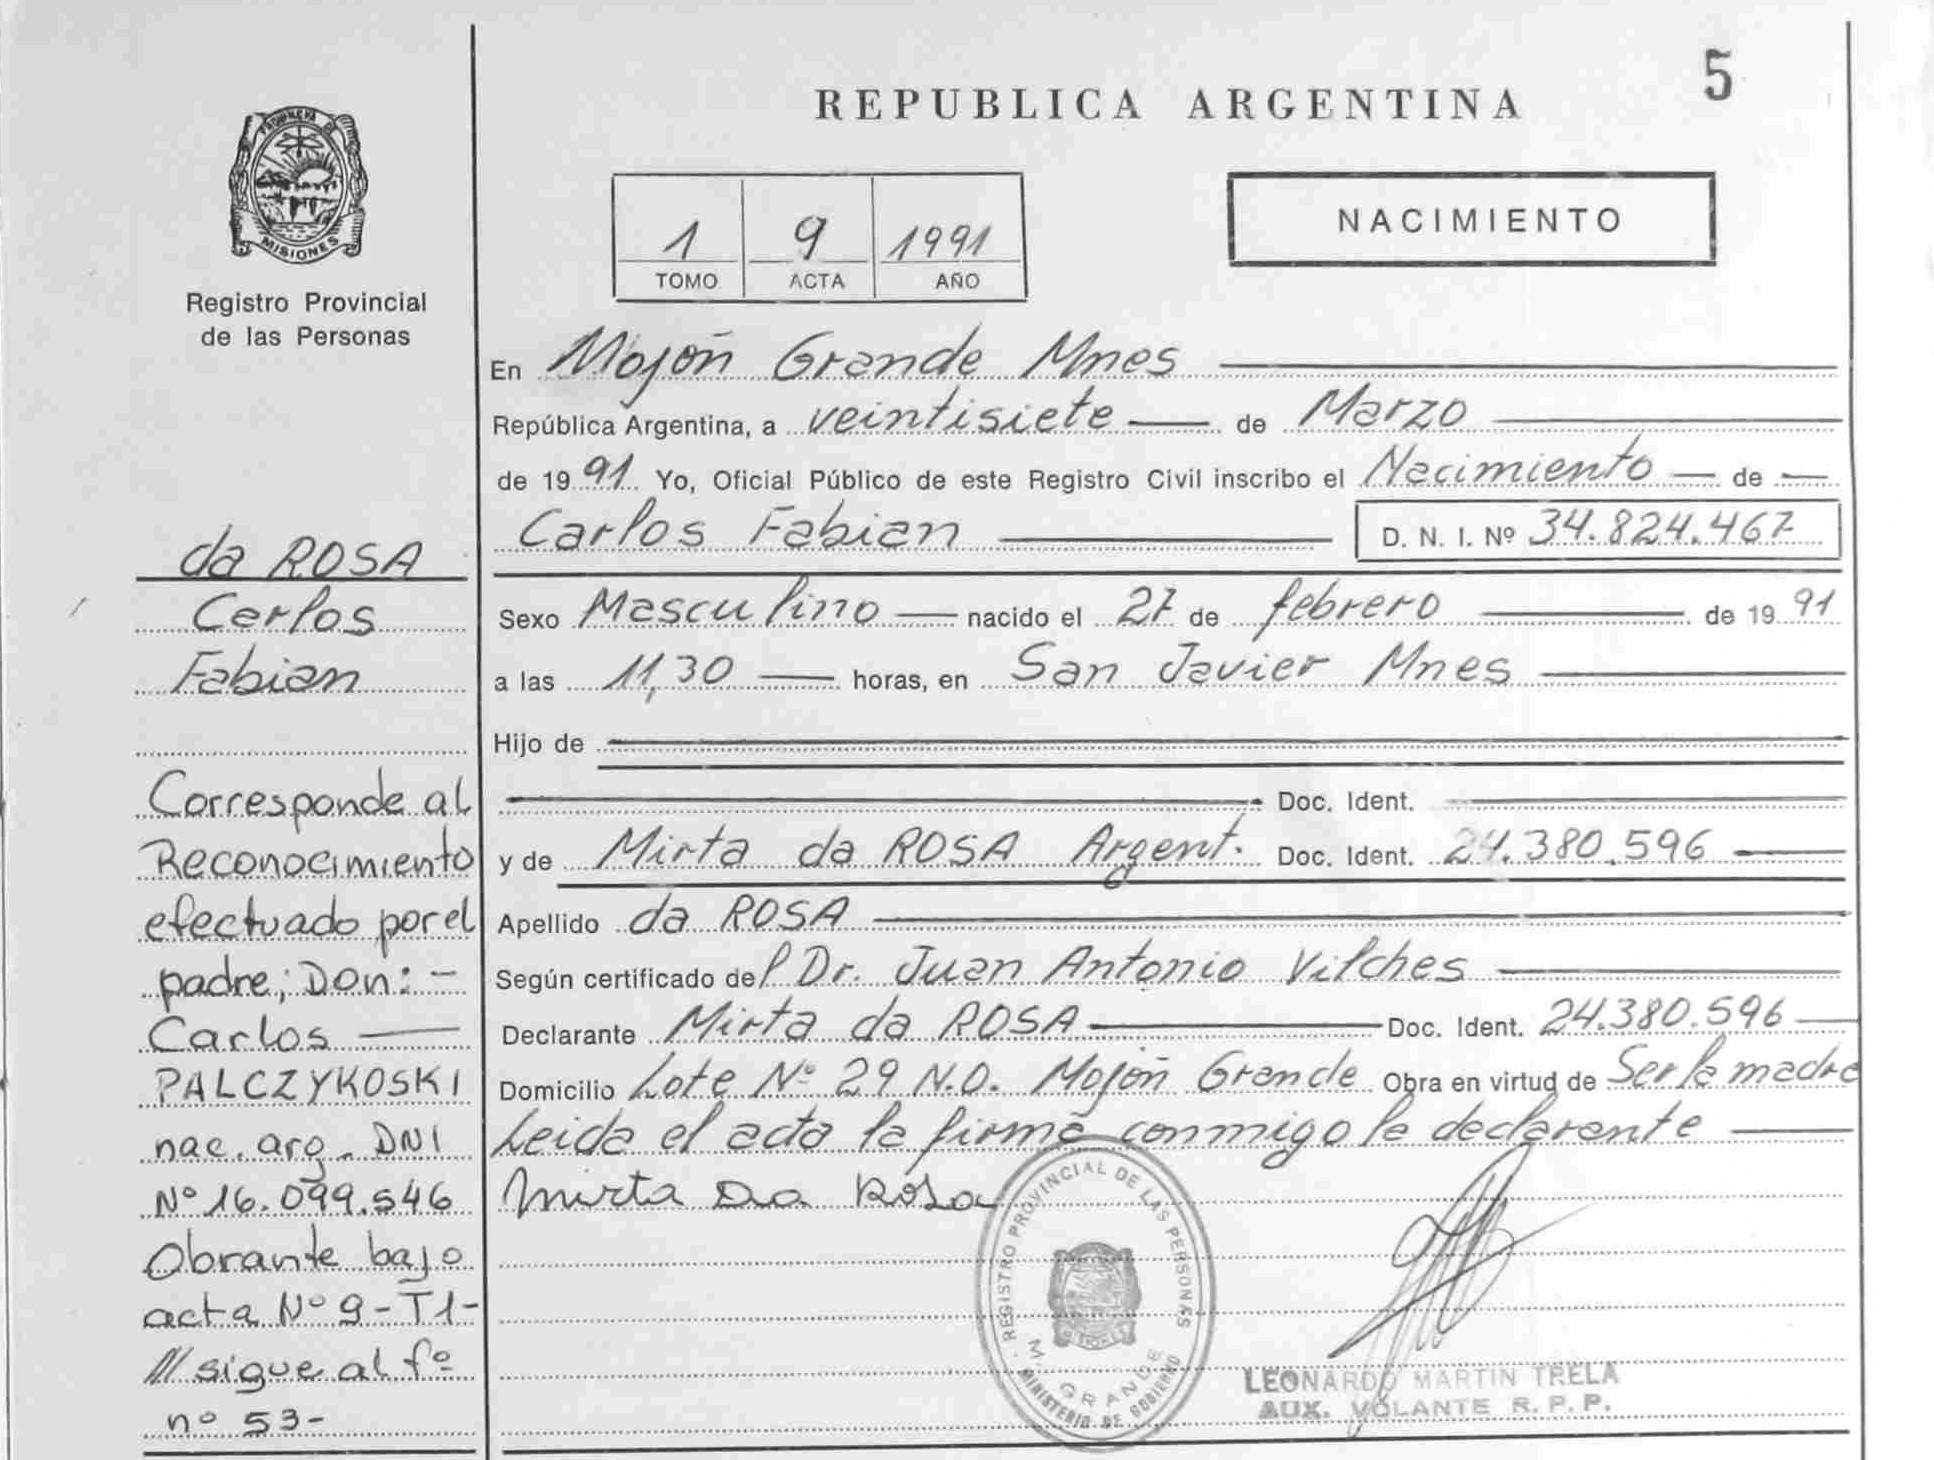 5
REPUBLICA ARGENTINA
PROVINCIA DE
MISIONES
Registro Provincial
de las Personas
1 9 1991
TOMO ACTA AÑO
NACIMIENTO
En Mojón Grande Mnes
República Argentina, a veintisiete de Marzo
de 19 91 Yo, Oficial Público de este Registro Civil inscribo el Nacimiento de
Carlos Fabian D. N. I. Nº 34.824.467
Sexo Masculino nacido el 27 de febrero de 19 91
a las 11,30 horas, en San Javier Mnes
Hijo de
Doc. Ident.
y de Mirta da ROSA Argent. Doc. Ident. 24.380.596
Apellido da ROSA
Según certificado del Dr. Juan Antonio Vilches
Declarante Mirta da ROSA Doc. Ident. 24.380.596
Domicilio Lote Nº 29 N.O. Mojón Grande Obra en virtud de Ser la madre
Leida el acta la firma conmigo la declarante
Mirta Da Rosa
REGISTRO PROVINCIAL DE LAS PERSONAS
M. GRANDE
MINISTERIO DE GOBIERNO
LEONARDO MARTIN TRELA
AUX. VOLANTE R. P. P.
da ROSA
Carlos
Fabian
Corresponde al
Reconocimiento
efectuado por el
padre; Don: -
Carlos —
PALCZYKOSKI
nac. arg. DNI
Nº 16.099.546
Obrante bajo
acta Nº 9-T1-
/// sigue al fº
nº 53-